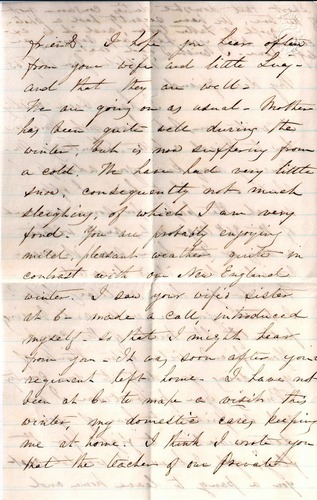 friends I hope you hear often
from your wife and little Lucy -
and that they are well -
We are going on as usual - Mother
has been quite well during the
winter, but is now suffering from
a cold. We have had very little
snow, consequently not much
sleighing, of which I am very
fond. You are probably enjoying
mild, pleasant weather, quite in
contrast with our New England
winter. I saw your wife's sister
at C- made a call, introduced
myself - so that I might hear
from you - It was soon after your
regiment left home - I have not
been at C- to make a visit this
winter, my domestic cares keeping
me at home. I think I wrote you
that the teacher of our Private